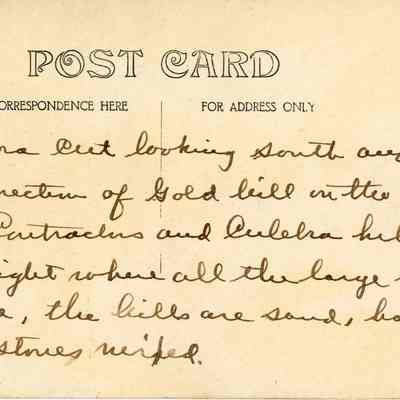 POST CARD
CORRESPONDENCE HERE FOR ADDRESS ONLY
Cut looking south
of Gold hill on the
Contractors and Culebra
where all the large
, the hills are sand,
stones mixed.